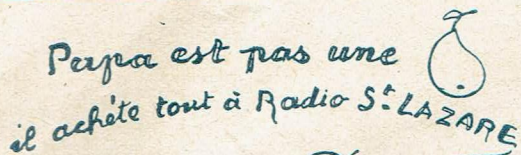 Papa est pas une
il achéte tout à Radio St. LAZARE